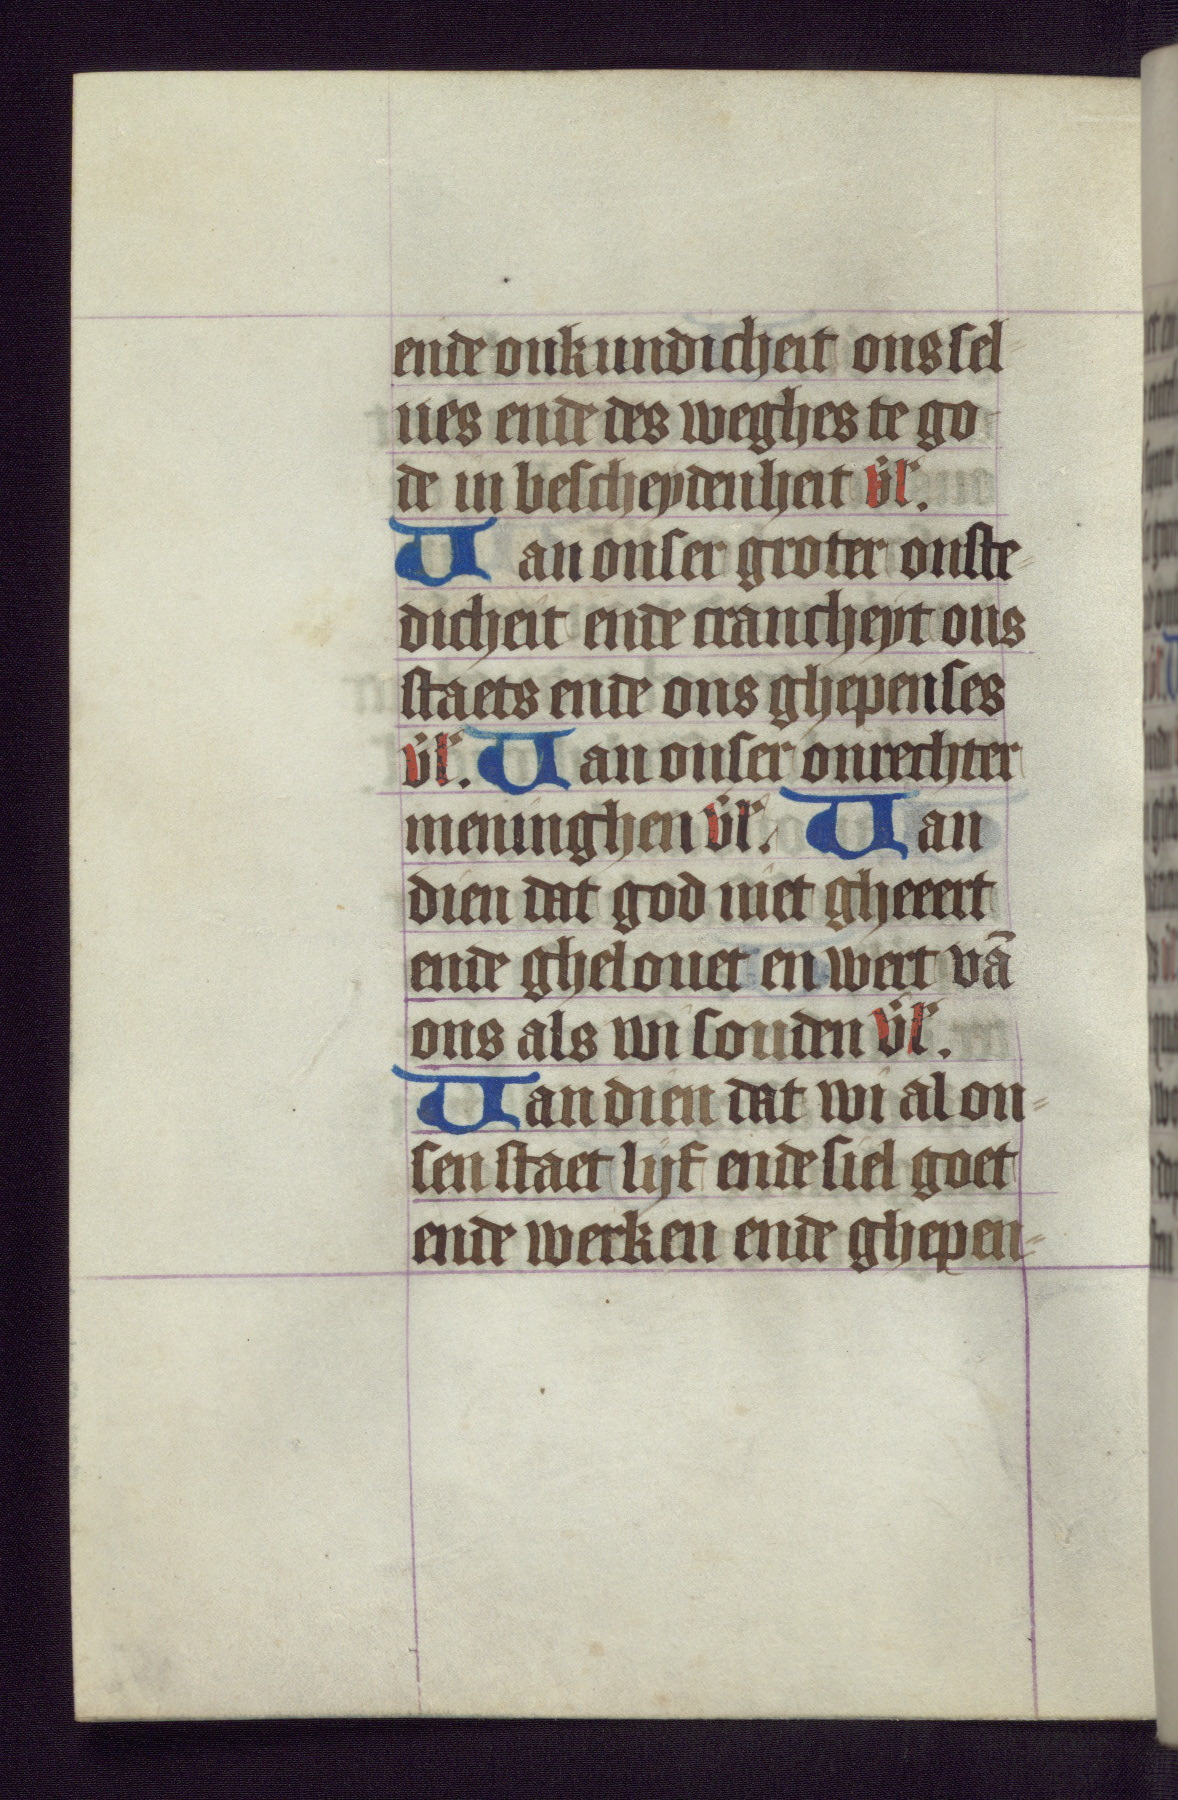 ende onkundicheit ons sel
ues ende des weghes te go
de in bescheydenheit v̾l̾.
Van onser groter onste
dicheit ende crancheyt ons
staets ende ons ghepenses
v̾l̾. Van onser onrechter
meninghen v̾l̾. Van
dien dat god niet gheeert
ende ghelouet en wert vā
ons als wi souden v̾l̾.
Van dien dat wi al on
sen staet lijf ende siel goet
ende werken ende ghepen